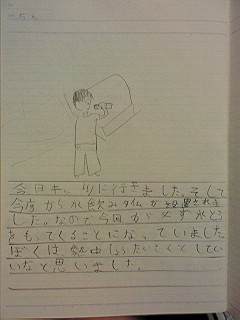 今日キ、りに行きました。そして
今度から水飲みタイムが設置されま
した。なので今回から必ず水とう
をもってくることになっていました
ぼくは熱中しょうたいさくとしてい
いなと思いました。